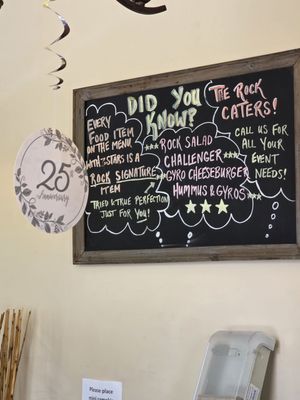 DID YOU
KNOW?
EVERY
FOOD ITEM
ON THE MENU
WITH 7 STARS IS A
ROCK SIGNATURE
ITEM
TRIED & TRUE PERFECTION
JUST FOR YOU!
ROCK SALAD
CHALLENGER
GYRO CHEESEBURGER
HUMMUS & GYROS
THE ROCK
CATERS!
CALL US FOR
ALL YOUR
EVENT
NEEDS!
25
Anniversary
Please place